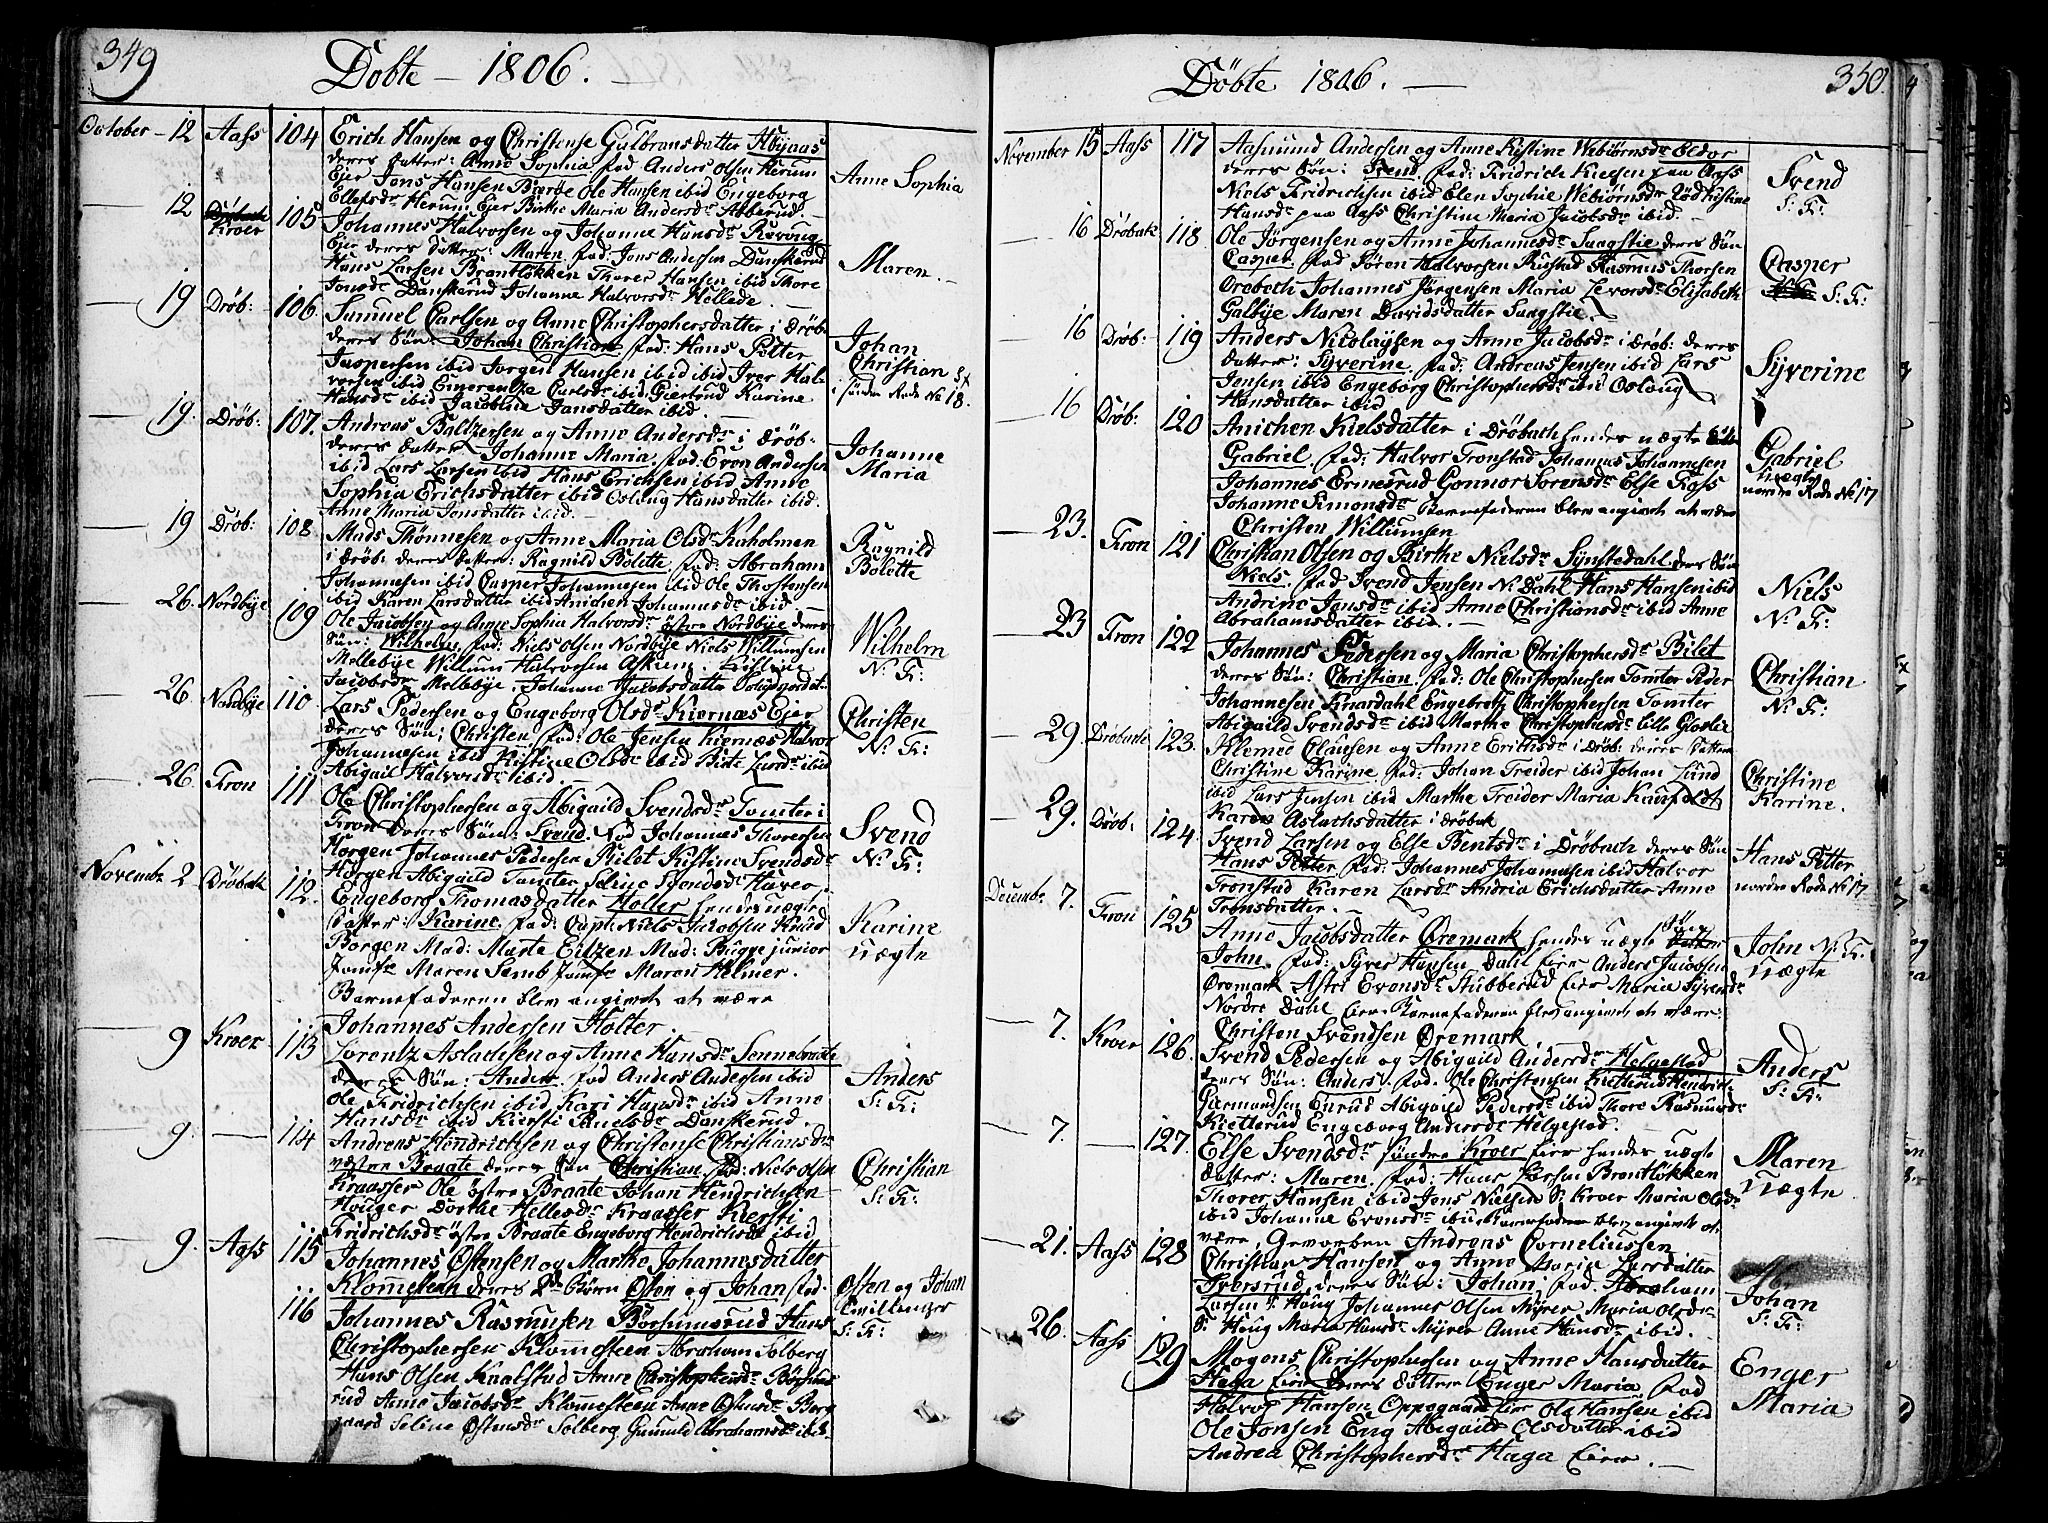 349
Döbte — 1806. —
October — 12 Aass 104 Erich Hansen og Christense Gulbransdatter
deres datter: Anne Sophia fad Anders Olsen Herum
Ejer Jons Hansen Bierke Ole Hansen ibid Engeborg
Ellefsdr Herum Ejer Birthe Maria Andersdr
Anne Sophia
— 12 Kroer 105 Johannes Halvorsen og Johanne Hansdr
Ejer deres datter: Maren fad: Jons Andersen Danskerud
Hans Larsen Brantløkken Thorer Hansen ibid Thore
Jonsdr Danskerud Johanne Halvorsdr Hellede
Maren.
— 19 Dröb: 106. Samuel Carlsen og Anne Christophersdatter i Dröb
deres Sön. Johan Christian fad: Hans Petter
Jaspersen ibid Jörgen Hansen ibid Iver Hal-
vorsen ibid Emerentze Carlsdr ibid Giertrud Karine
Hansdr ibid Jacobine Jansdatter ibid.
Johan
Christian
söndre Rode No 18.
— 19. Dröb: 107. Andreas Baltzersen og Anne Andersdr i Dröb:
deres datter Johanne Maria. fad: Even Andersen
ibid Lars Larsen ibid Hans Erichsen ibid Anne
Sophia Erichsdatter ibid Oslaug Hansdatter ibid.
Anne Maria Jonsdatter ibid. —
Johanne
Maria
— 19 Dröb: 108 Mads Thönnesen og Anne Maria Olsdr Kaholmen
i Dröb: deres datter: Ragnild Bolette. fad: Abraham
Johannesen ibid Casper Johannesen ibid Ole Thostensen
ibid Karen Larsdatter ibid Anichen Johannesdr ibid
Ragnild
Bolette
— 26. Nordbye 109 Ole Jacobsen og Anne Sophia Halvorsdr östre Nordbye deres
Sön: Wilhelm. fad: Niels Olsen Nordbye Niels Willumsen
Mellebye Willum Halvorsen Askium. Kistine
Jacobsdr Mellebye. Johanne Jacobsdatter
Wilhelm
N: K:
— 26 Nordbye 110 Lars Pedersen og Engeborg Olsdr Kiernæs Ejer
deres Sön; Christen fad: Ole Jensen Kiernæs Halvor
Johannesen ibid Kistine Olsdr ibid Birte Larsdr ibid
Abigail Halvorsdr ibid
Christen
N: K:
— 26. Fron 111 Ole Christophersen og Abigaild Svendsdr Tomter i
Fron deres Sön: Svend. fad Johannes Thoresen
Horgen Johannes Pedersen Bilet Kistine Svendsdr
Horgen Abigaild Tomter Seline Svendsdr Haver
Svend
N: K:
Novembr 2 Dröbak 112. Engeborg Thomasdatter Holter hendes uægte
datter: Karine. fad: Capt: Niels Jacobsen Knud
Borgen Mad: Marte Eitzen Mad: Bugge junior
Jomfr Maren Semb Jomfr Maren Helmer.
Barnefaderen blev angivet at være
Johannes Andersen Holter.
Karine
uægte
— 9 Kroer 113 Lorentz Aslachsen og Anne Hansdr Sonnebraate
deres Sön: Anders. fad Anders Andersen ibid
Ole Fridrichsen ibid Kari Hansdr ibid Anne
Hansdr ibid Kiersti Poulsdr Danskerud.
Anders
S: K:
— 9. — 114 Andreas Hendrichsen og Christense Christiansdr
vestre Braate deres Sön Christian. fad: Niels Olsen
Kraasser Ole östre Braate Johan Hendrichsen
Houger Dorthe Hellesdr Kraasser Kiersti
Fridrichsdr östre Braate Engeborg Hendrichsdr ibid
Christian
S: K:
— 9. Aass 115 Johannes Östensen og Marthe Johannesdatter
Klomesteen deres 2de Börn Østen og Johan. fad:
116 Johannes Rasmusen Börsumsrud Hans
Christophersen Klommesteen Abraham Solberg
Hans Olsen Knalstad Anne Christophersdr
rud Anne Jacobsdr Klomesteen Anne Östensdr Borg
gaard Seline Östensdr Solberg. Gunnild Abrahamsdr ibid.
Østen og Johan
Tvillenger
S: K:
350.
Döbte 1806. —
November 15 Aass 117 Aasmund Andersen og Anne Kistine Webiörnsdr Eldor
deres Sön: Svend. fad: Fridrich Kielsen paa Aass
Niels Fridrichsen ibid Elen Sophie Webiörnsdr Röd Kistine
Hansdr paa Aass Christine Maria Jacobsdr ibid.
Svend
S: K:
— 16 Dröbak 118 Ole Jörgensen og Anne Johannesdr Saugstie deres Sön
Casper. fad Sören Halvorsen Rustad Rasmus Thorsen
Orebech Johannes Jörgensen Maria Levorsdr Elisabeth
Galbye Maren Davidsdatter Saugstie.
Casper
S: K:
— 16 Dröb: 119 Anders Nicolaysen og Anne Jacobsdr i Dröb: deres
datter: Syverine. fad: Andreas Jensen ibid Lars
Jensen ibid Engeborg Christophersdr ibid Oslaug
Hansdatter ibid
Syverine
— 16 Dröb: 120 Anichen Kielsdatter i Dröbach hendes uægte
Gabriel. fad: Halvor Tronstad Johannes Johannesen
Johannes Ermesrud Gonnor Sorensdr Else Kass
Johanne Simonsdr Barnefaderen blev angivet at være
Christen Willumsen
Gabriel
Uægte
nordre Rode No 17
— 23. Fron 121 Christian Olsen og Birthe Nielsdr Synstedahl deres Sön
Niels. fad Svend Jensen N: Dahl Hans Hansen ibid
Andrine Jonsdr ibid Anne Christiansdr ibid Anne
Abrahamsdatter ibid. —
Niels
N: K:
— 23 Fron 122 Johannes Pedersen og Maria Christophersdr Bilet
deres Sön: Christian. fad: Ole Christophersen Tomter Peder
Johannesen Knardahl Engebreth Christophersen Tomter
Abigaild Svendsdr ibid Marthe Christophersdr Lille
Christian
N: K:
— 29. Dröbach 123. Klemed Clausen og Anne Erichsdr i Dröb: deres datter
Christine Karine fad: Johan Treider ibid Johan Lund
ibid Lars Jensen ibid Marthe Treider Maria Kaufeldt
Karen Aslachsdatter i Dröbak
Christine
Karine.
— 29. Dröb: 124. Svend Larsen og Else Bentsdr i Dröbach deres Sön
Hans Petter fad: Johannes Johannesen ibid Halvor
Tronstad Karen Larsdr Andria Erichsdatter Anne
Tronsdatter. —
Hans Petter
nordre Rode No 17
Decembr 7. Fron 125 Anne Jacobsdatter Oremark hendes uægte Sön
John. fad: Syver Hansen Dahl Eier Anders Jacobsen
Oremark Astri Evensdr Stubberud Eier Maria Syversdr
Nordre Dahl Eier Barnefaderen blev angivet at være:
Christen Svendsen Oremark
John N: K:
Uægte
— 7. Kroer 126. Svend Pedersen og Abigaild Andersdr Helgestad
deres Sön: Anders. fad. Ole Christensen Kietterud Hendrich
Germundsen Enerud Abigaild Pedersdr ibid Thore Rasmusdr
Kietterud Engeborg Andersdr Helgestad.
Anders
S: K:
— 7. — 127. Else Svendsdr söndre Kroer Eier hendes uægte
datter: Maren. fad: Hans Larsen Brantløkken
Thorer Hansen ibid Jons Nielsen S: Kroer Maria Olsdr
ibid Johanne Evensdr ibid: Barnefaderen blev angivet at
være, Gevorben Andreas Corneliussen
Maren
Uægte
— 21. Aass 128 Christian Hansen og Anne Maria Larsdatter
Sversrud. deres Sön: Johan, fad. Abraham
Larsen S: Houg Johannes Olsen Myrer Maria Olsdr
S: Houg Maria Hansdr Myrer Anne Hansdr ibid.
Johan
S: K:
— 26. Aass 129 Mogens Christophersen og Anne Hansdatter
Haga Eier deres datter Enger Maria fad
Halvor Hansen Oppegaard Eier Ole Hansen ibid
Ole Jonsen Eng Abigaild Olsdatter ibid
Andrea Christophersdr Haga Eier. —
Enger
Maria